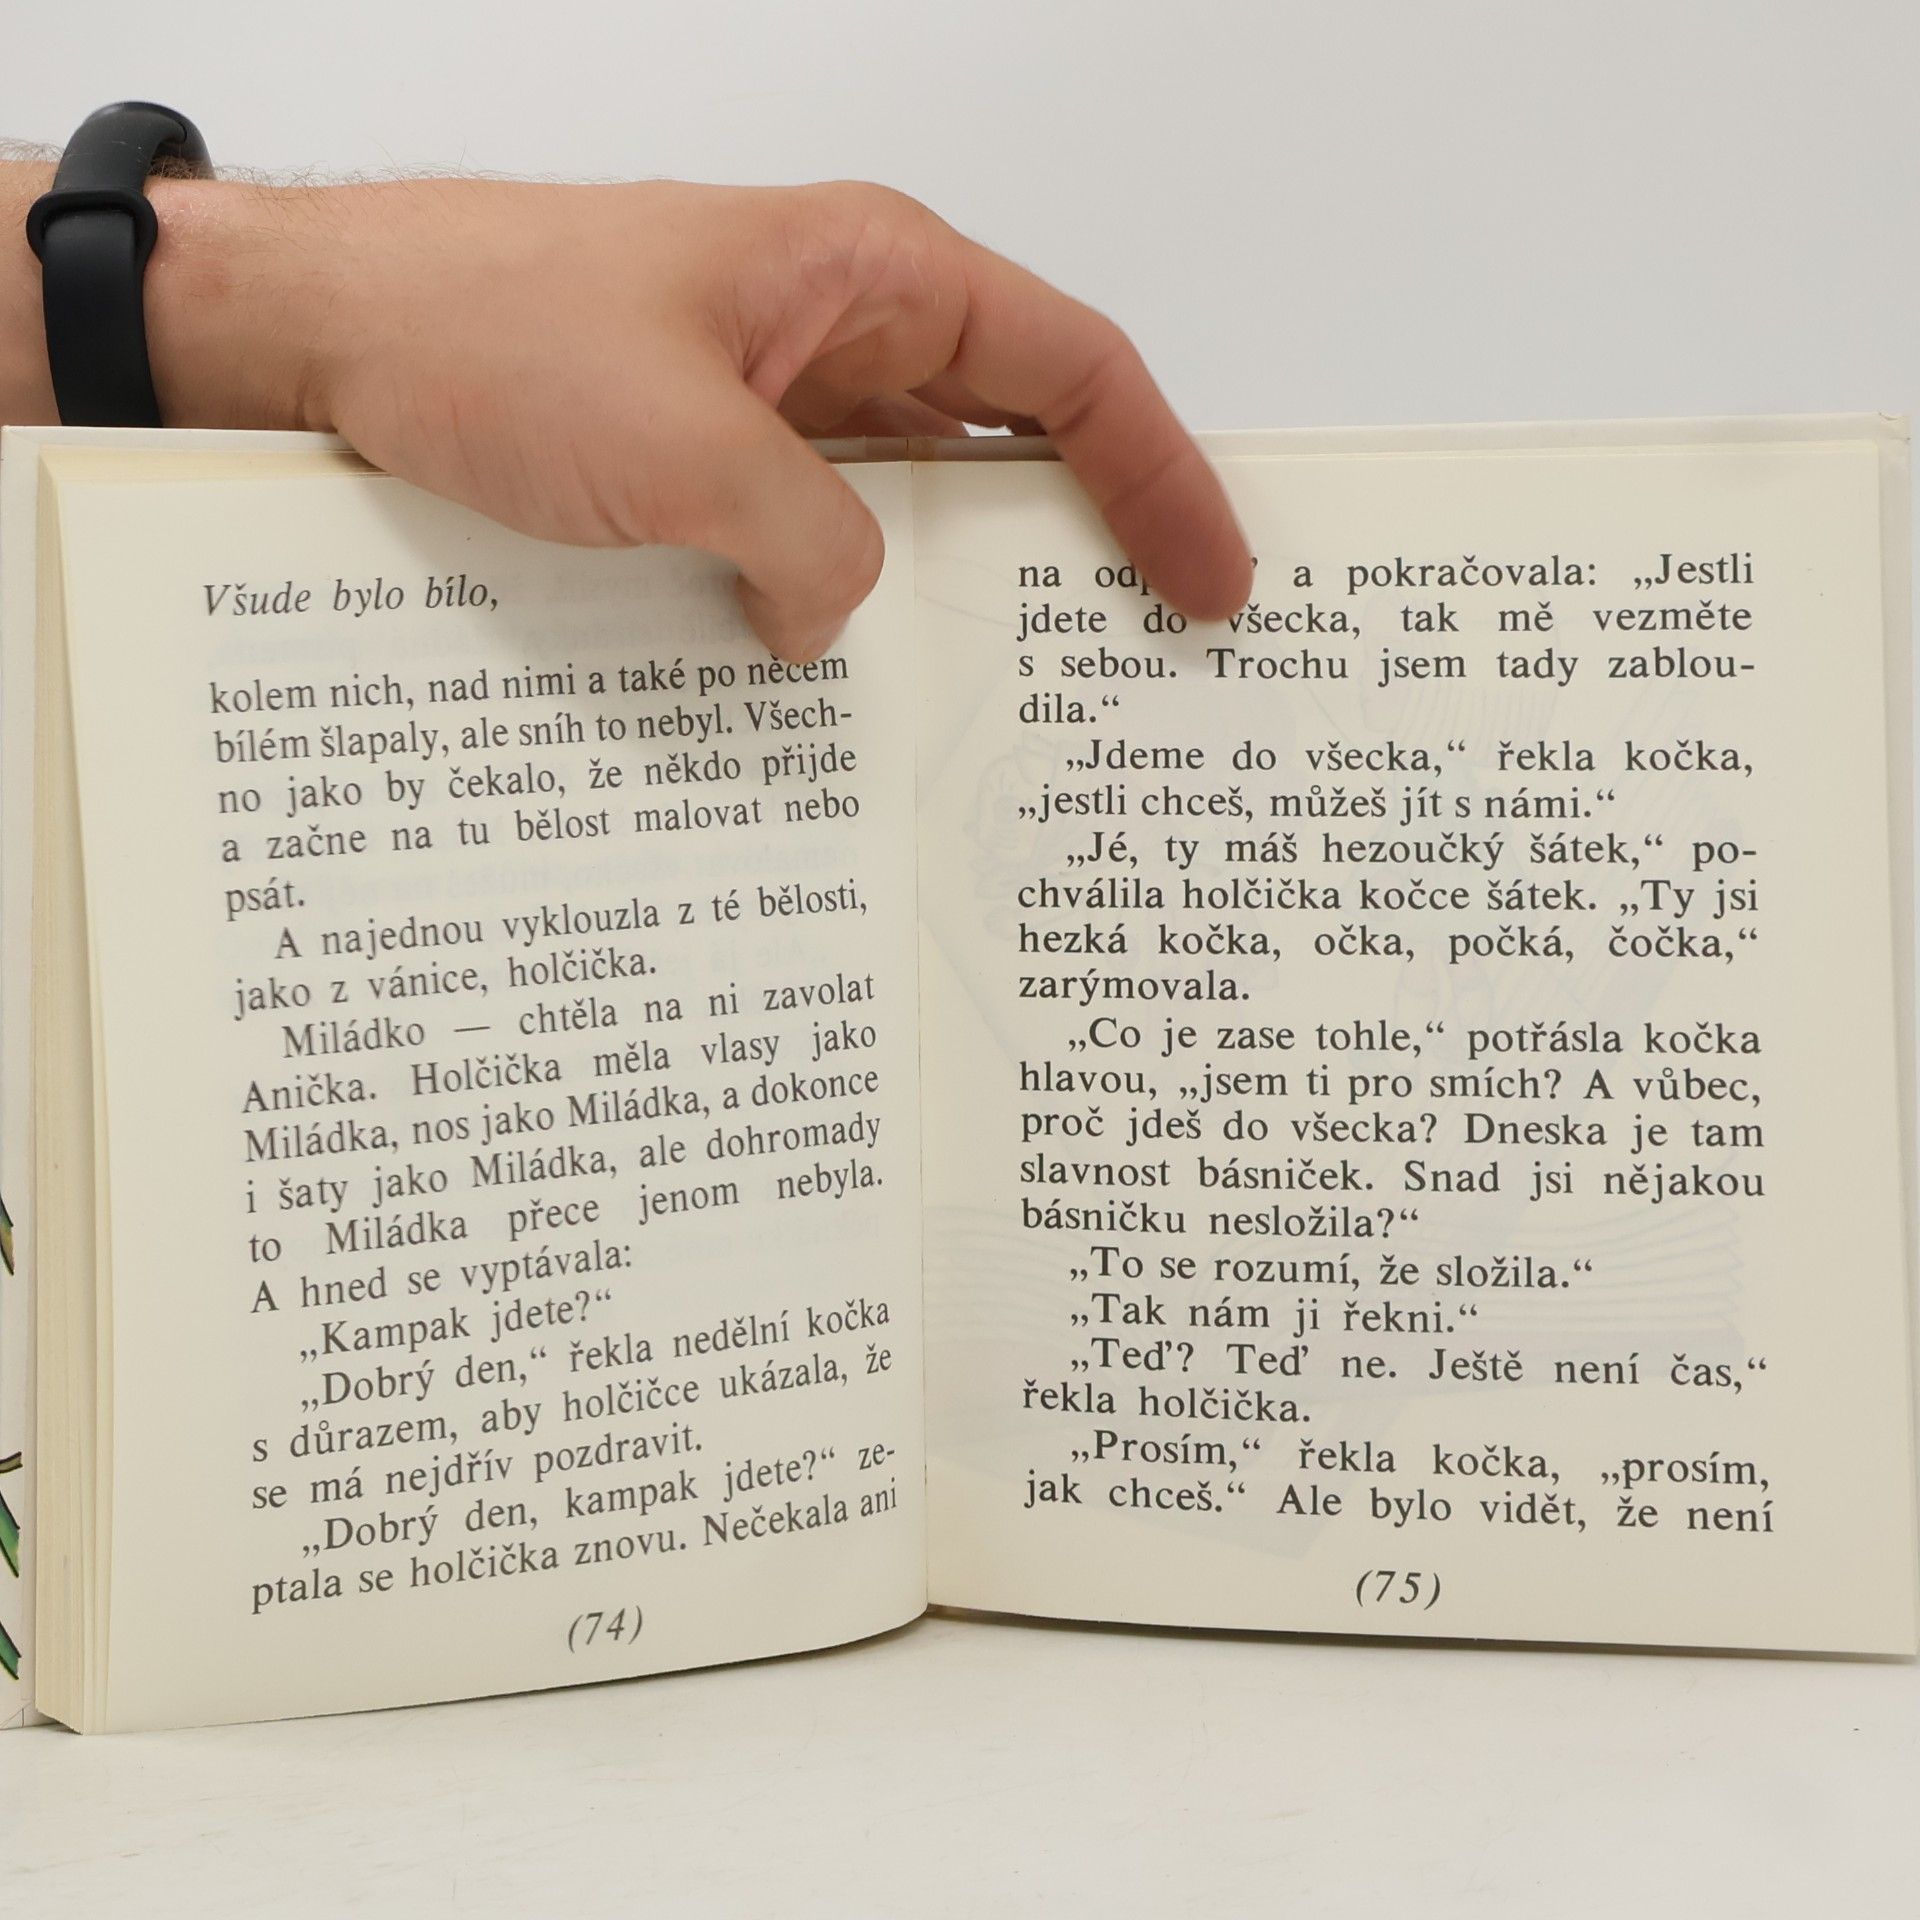 Všude bylo bílo,
kolem nich, nad nimi a také po něčem
bílém šlapaly, ale sníh to nebyl. Všech-
no jako by čekalo, že někdo přijde
a začne na tu bělost malovat nebo
psát.
A najednou vyklouzla z té bělosti,
jako z vánice, holčička.
Miládko — chtěla na ni zavolat
Anička. Holčička měla vlasy jako
Miládka, nos jako Miládka, a dokonce
i šaty jako Miládka, ale dohromady
to Miládka přece jenom nebyla.
A hned se vyptávala:
„Kampak jdete?“
„Dobrý den,“ řekla nedělní kočka
s důrazem, aby holčičce ukázala, že
se má nejdřív pozdravit.
„Dobrý den, kampak jdete?“ ze-
ptala se holčička znovu. Nečekala ani
(74)
na a pokračovala: „Jestli
jdete do všecka, tak mě vezměte
s sebou. Trochu jsem tady zablou-
dila.“
„Jdeme do všecka,“ řekla kočka,
„jestli chceš, můžeš jít s námi.“
„Jé, ty máš hezoučký šátek,“ po-
chválila holčička kočce šátek. „Ty jsi
hezká kočka, očka, počká, čočka,“
zarýmovala.
„Co je zase tohle,“ potřásla kočka
hlavou, „jsem ti pro smích? A vůbec,
proč jdeš do všecka? Dneska je tam
slavnost básniček. Snad jsi nějakou
básničku nesložila?“
„To se rozumí, že složila.“
„Tak nám ji řekni.“
„Teď? Teď ne. Ještě není čas,“
řekla holčička.
„Prosím,“ řekla kočka, „prosím,
jak chceš.“ Ale bylo vidět, že není
(75)